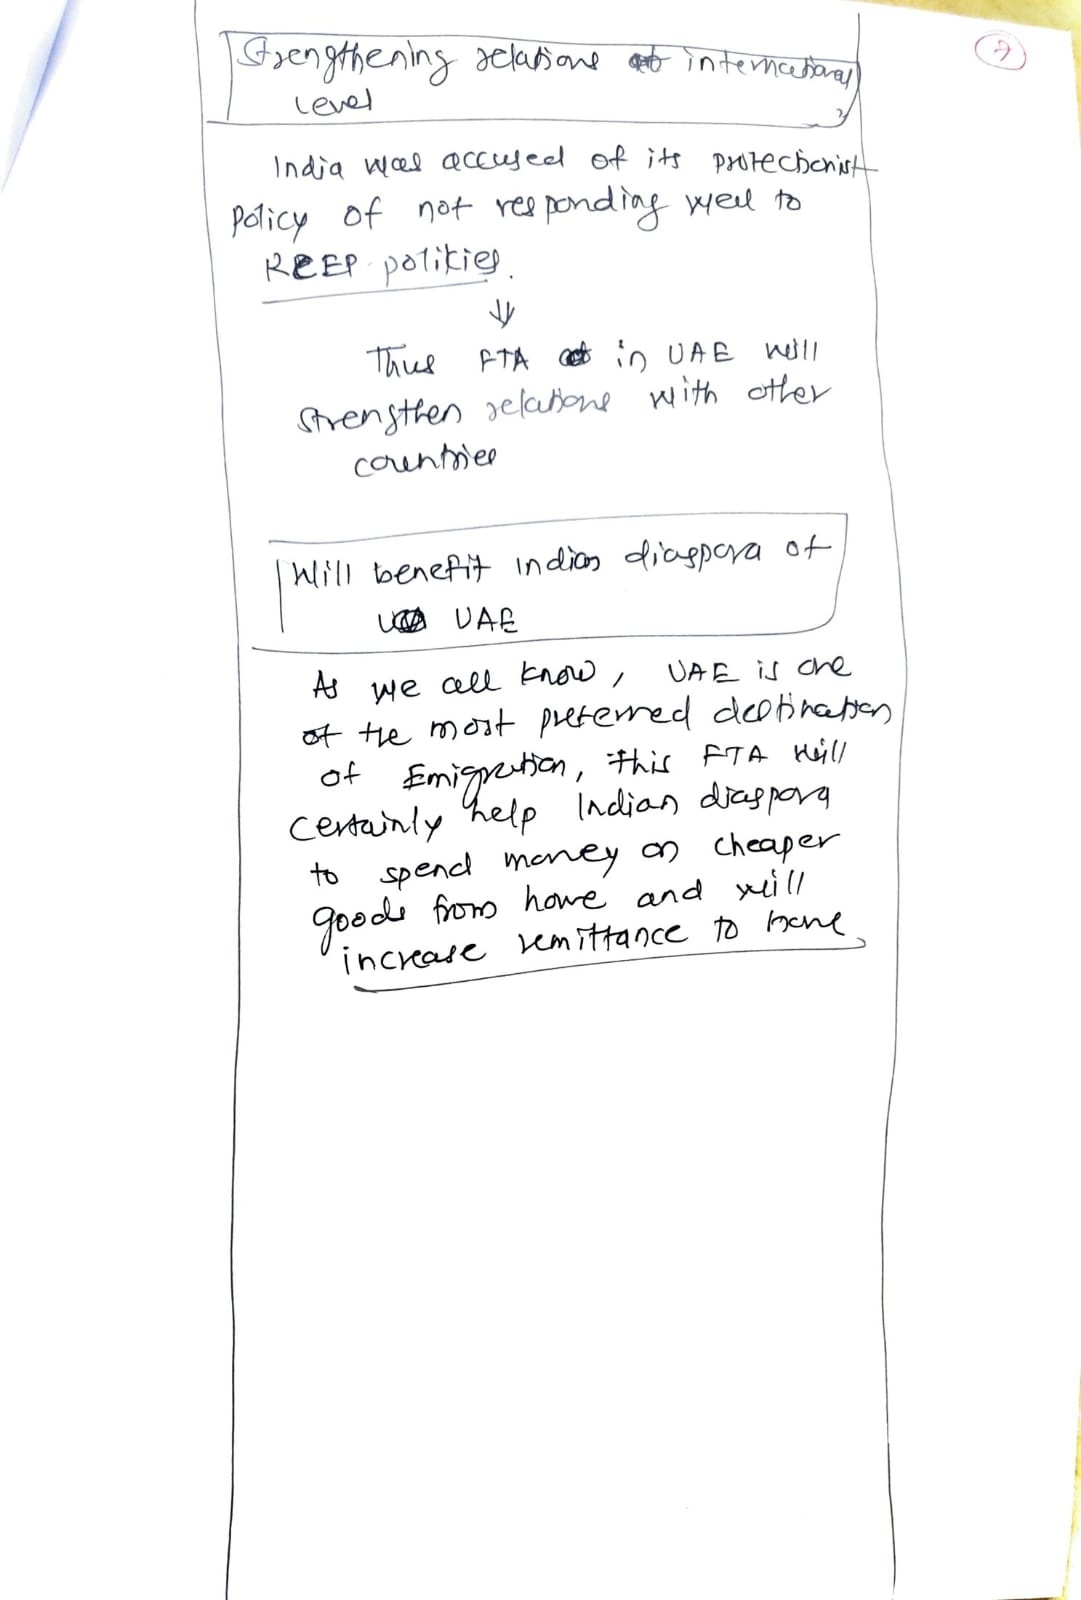 7
Strengthening relations at international
level
India was accused of its protectionist
policy of not responding well to
RCEP politics.
Thus FTA in UAE will
strengthen relations with other
countries
Will benefit Indian diaspora of
UAE
As we all know, UAE is one
of the most preferred destination
of Emigration, this FTA will
certainly help Indian diaspora
to spend money on cheaper
goods from home and will
increase remittance to home